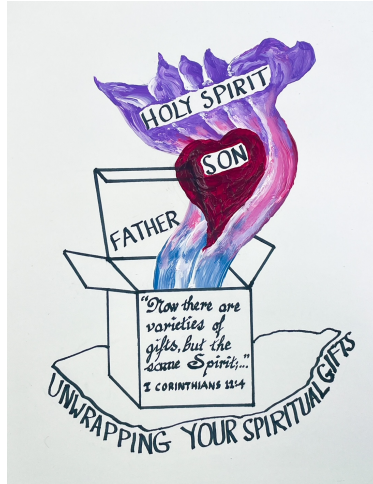 HOLY SPIRIT
SON
FATHER
"Now there are
varieties of
gifts, but the
same Spirit;..."
I CORINTHIANS 12:4
UNWRAPPING YOUR SPIRITUAL GIFTS